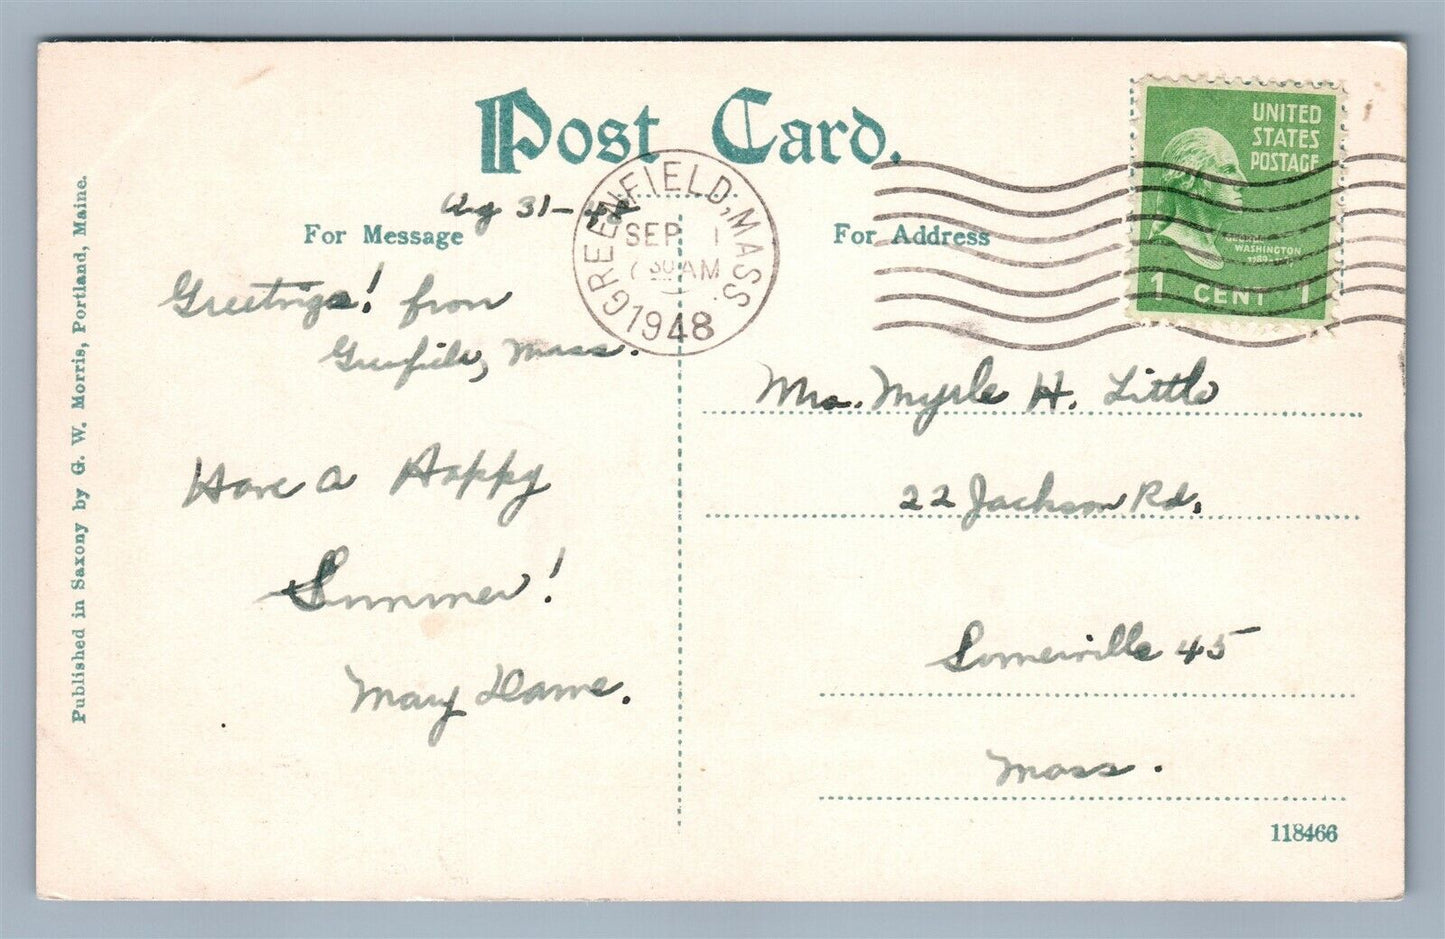 Post Card.
Aug 31-48
For Message
For Address
GREENFIELD, MASS.
SEP 1
7 30 AM
1948
UNITED
STATES
POSTAGE
GEORGE
WASHINGTON
1 CENT 1
Greetings! from
Greenfield, Mass.
Have a Happy
Summer!
Mary
Mrs. Myrle H. Little
22 Jackson Rd.
Somerville 45
Mass.
118466
Published in Saxony by G. W. Morris, Portland, Maine.